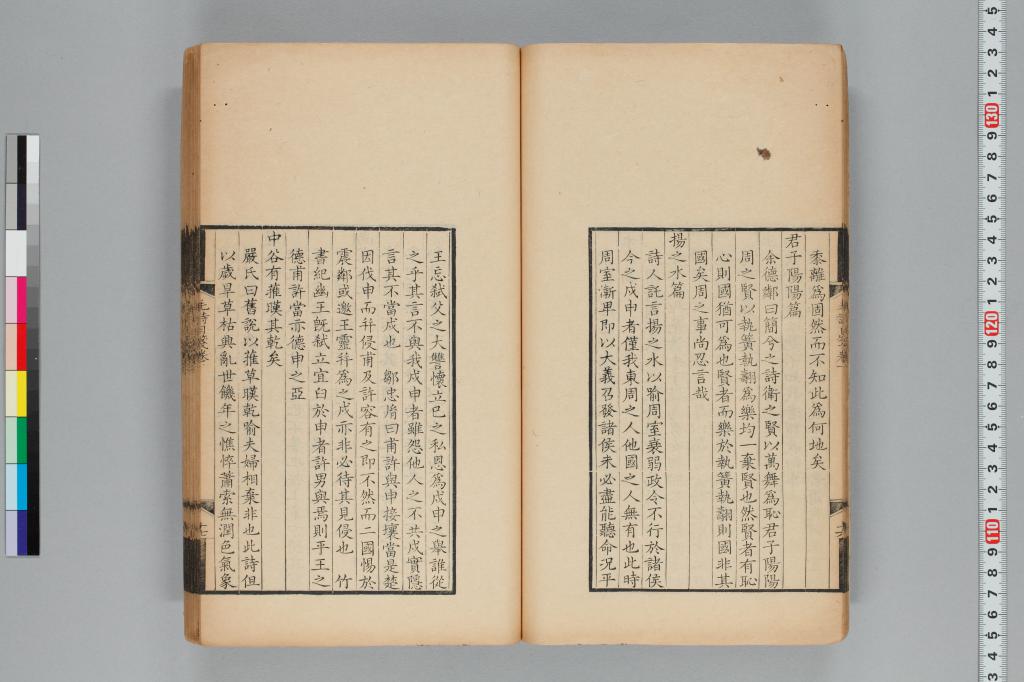 黍離爲固然而不知此爲何地矣
君子陽陽篇
余德鄰曰簡兮之詩衛之賢以萬舞爲恥君子陽陽
周之賢以執簧執翿爲樂均一棄賢也然賢者有恥
心則國猶可爲也賢者而樂於執簧執翿則國非其
國矣周之事尚忍言哉
揚之水篇
詩人託言揚之水以喻周室衰弱政令不行於諸侯
今之戍申者僅我東周之人他國之人無有也此時
周室漸卑即以大義召發諸侯未必盡能聽命況平
王忘弑父之大讐懷立已之私恩爲戍申之舉誰從
之乎其言不與我戍申者雖怨他人之不共戍實隱
言其不當戍也 鄒忠胤曰甫許與申接壤當是楚
因伐申而幷侵甫及許容有之即不然而二國惕於
震鄰或邀王靈幷爲之戍亦非必待其見侵也 竹
書紀幽王旣弑立宜臼於申者許男與焉則平王之
德甫許當亦德申之亞
中谷有蓷暵其乾矣
嚴氏曰舊說以蓷草暵乾喻夫婦相棄非也此詩但
以歲旱草枯興亂世饑年之憔悴蕭索無潤色氣象